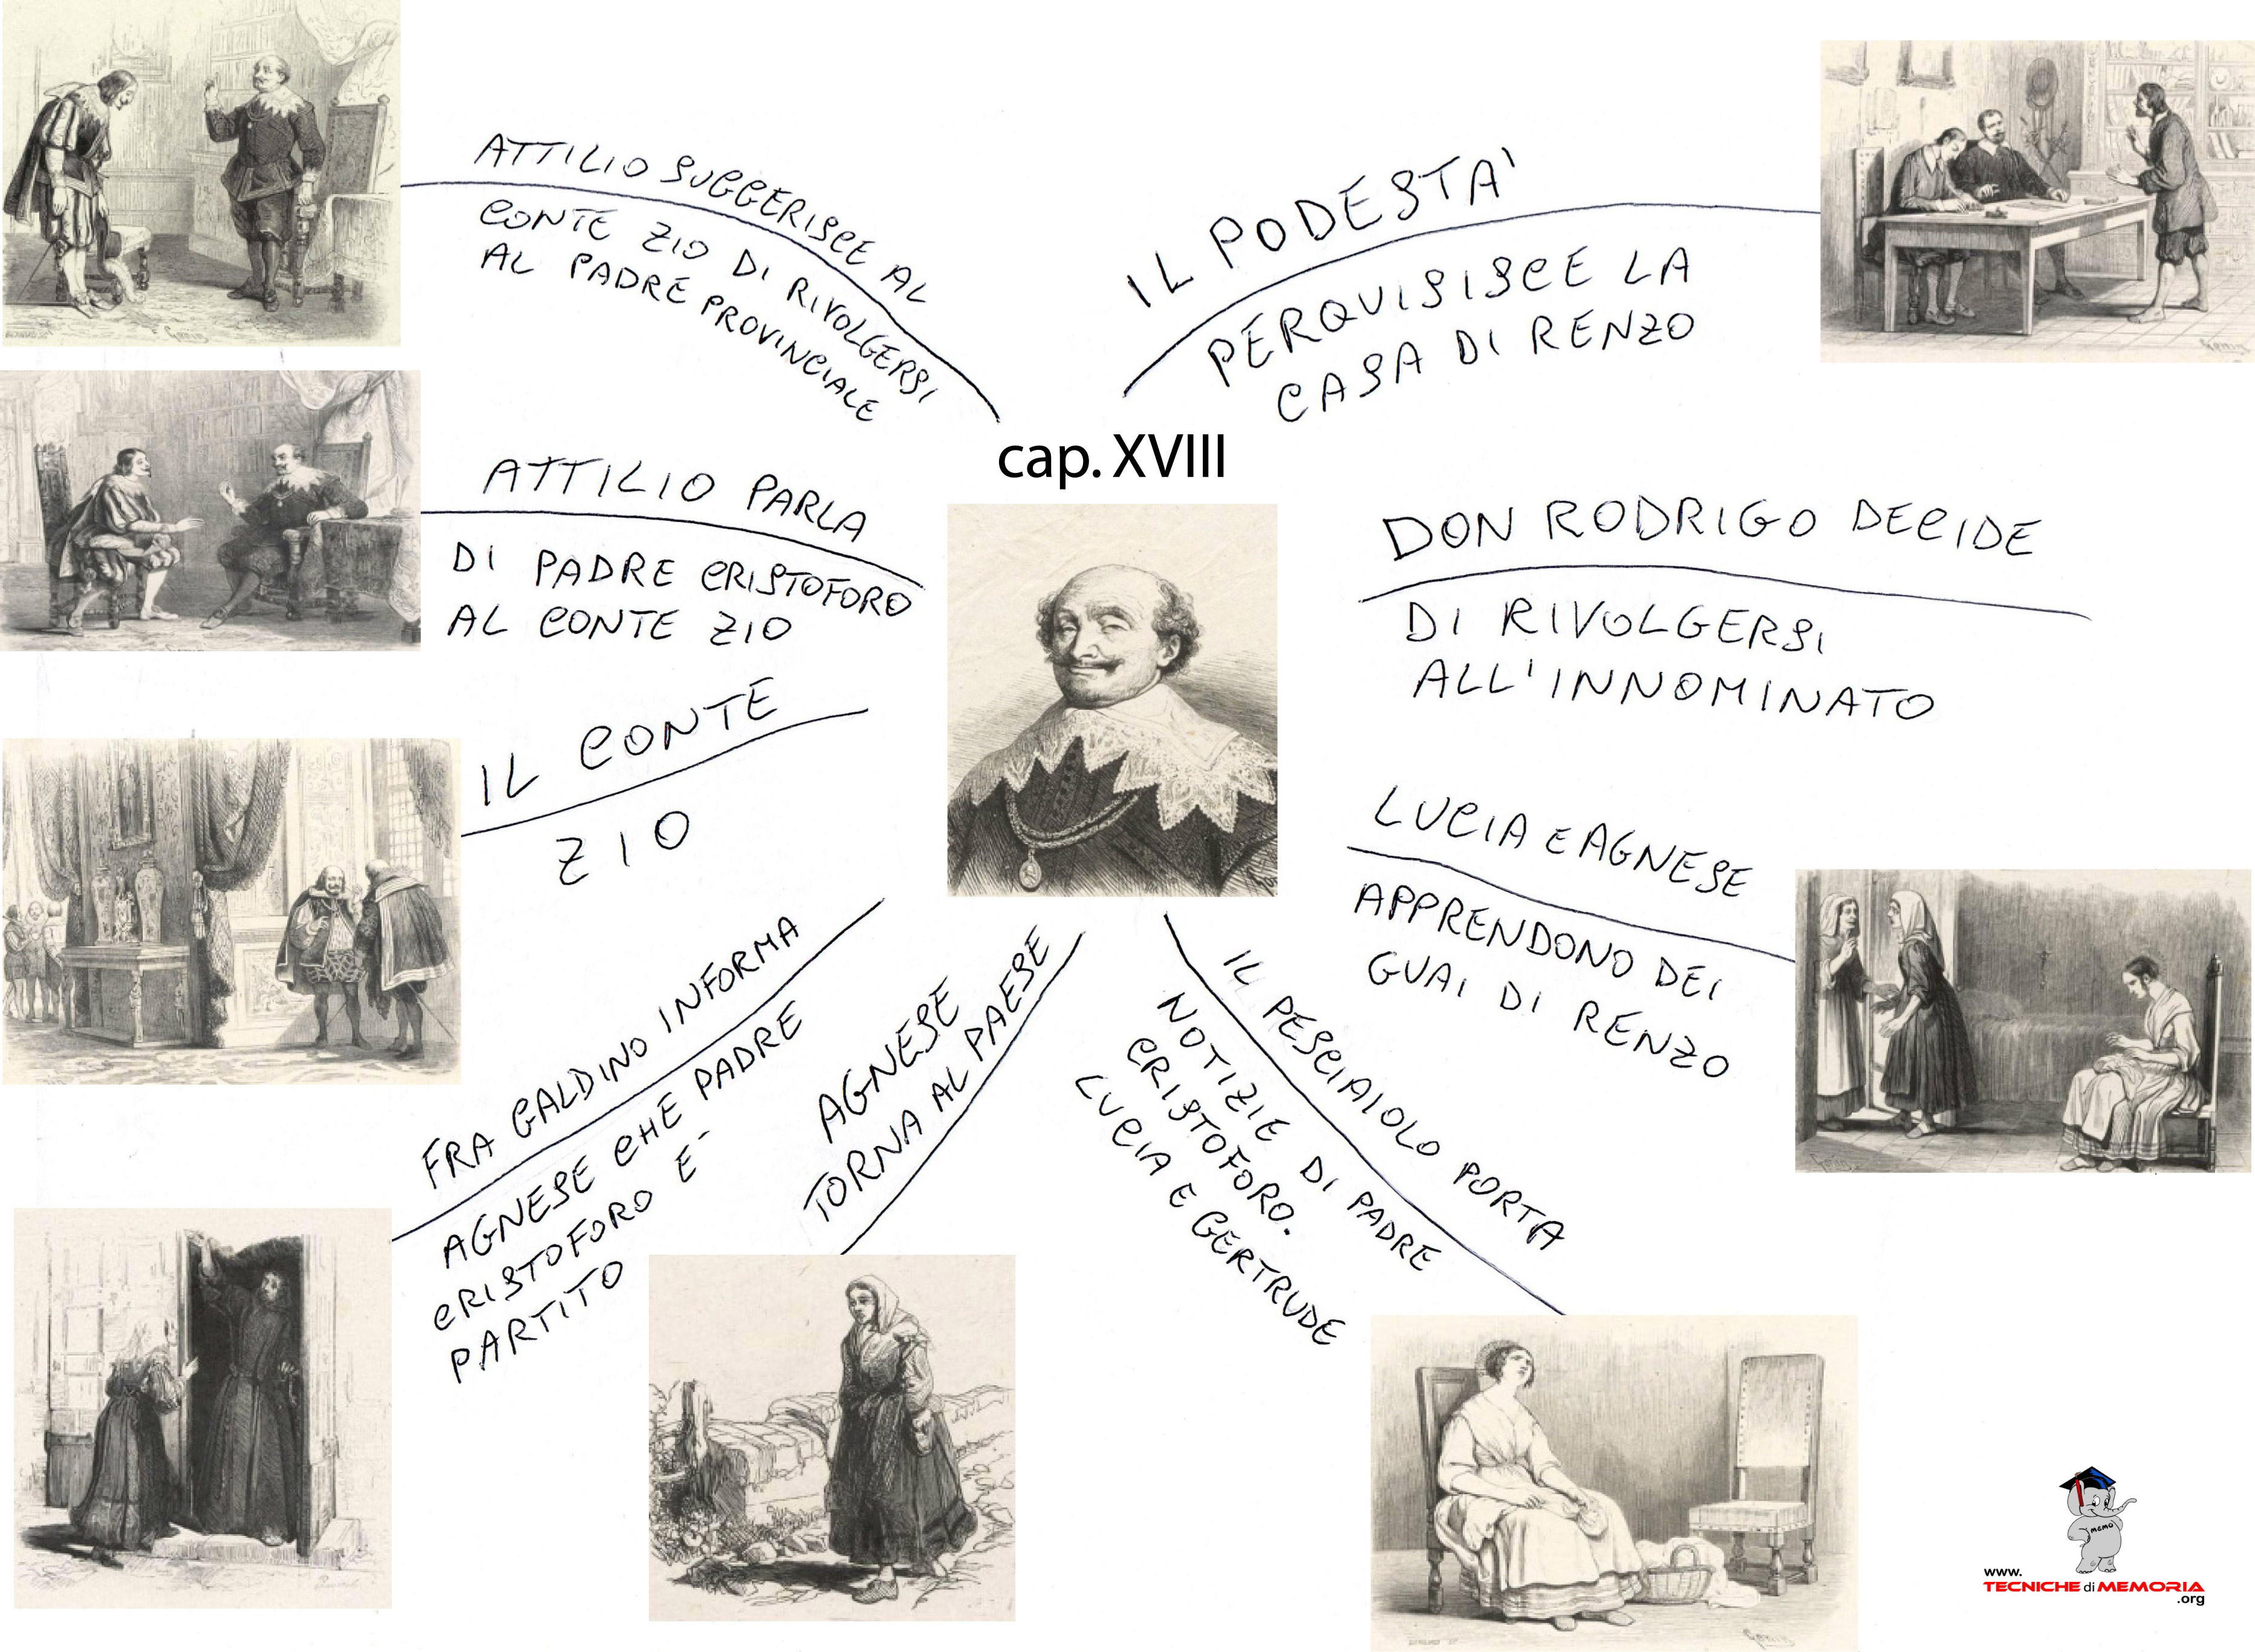 cap. XVIII
IL PODESTA'
PERQUISISCE LA
CASA DI RENZO
DON RODRIGO DECIDE
DI RIVOLGERSI
ALL'INNOMINATO
LUCIA E AGNESE
APPRENDONO DEI
GUAI DI RENZO
IL PESCIAIOLO PORTA
NOTIZIE DI PADRE
CRISTOFORO.
LUCIA E GERTRUDE
AGNESE
TORNA AL PAESE
FRA GALDINO INFORMA
AGNESE CHE PADRE
CRISTOFORO E'
PARTITO
IL CONTE
ZIO
ATTILIO PARLA
DI PADRE CRISTOFORO
AL CONTE ZIO
ATTILIO SUGGERISCE AL
CONTE ZIO DI RIVOLGERSI
AL PADRE PROVINCIALE
MEMO
www.
TECNICHE di MEMORIA
.org